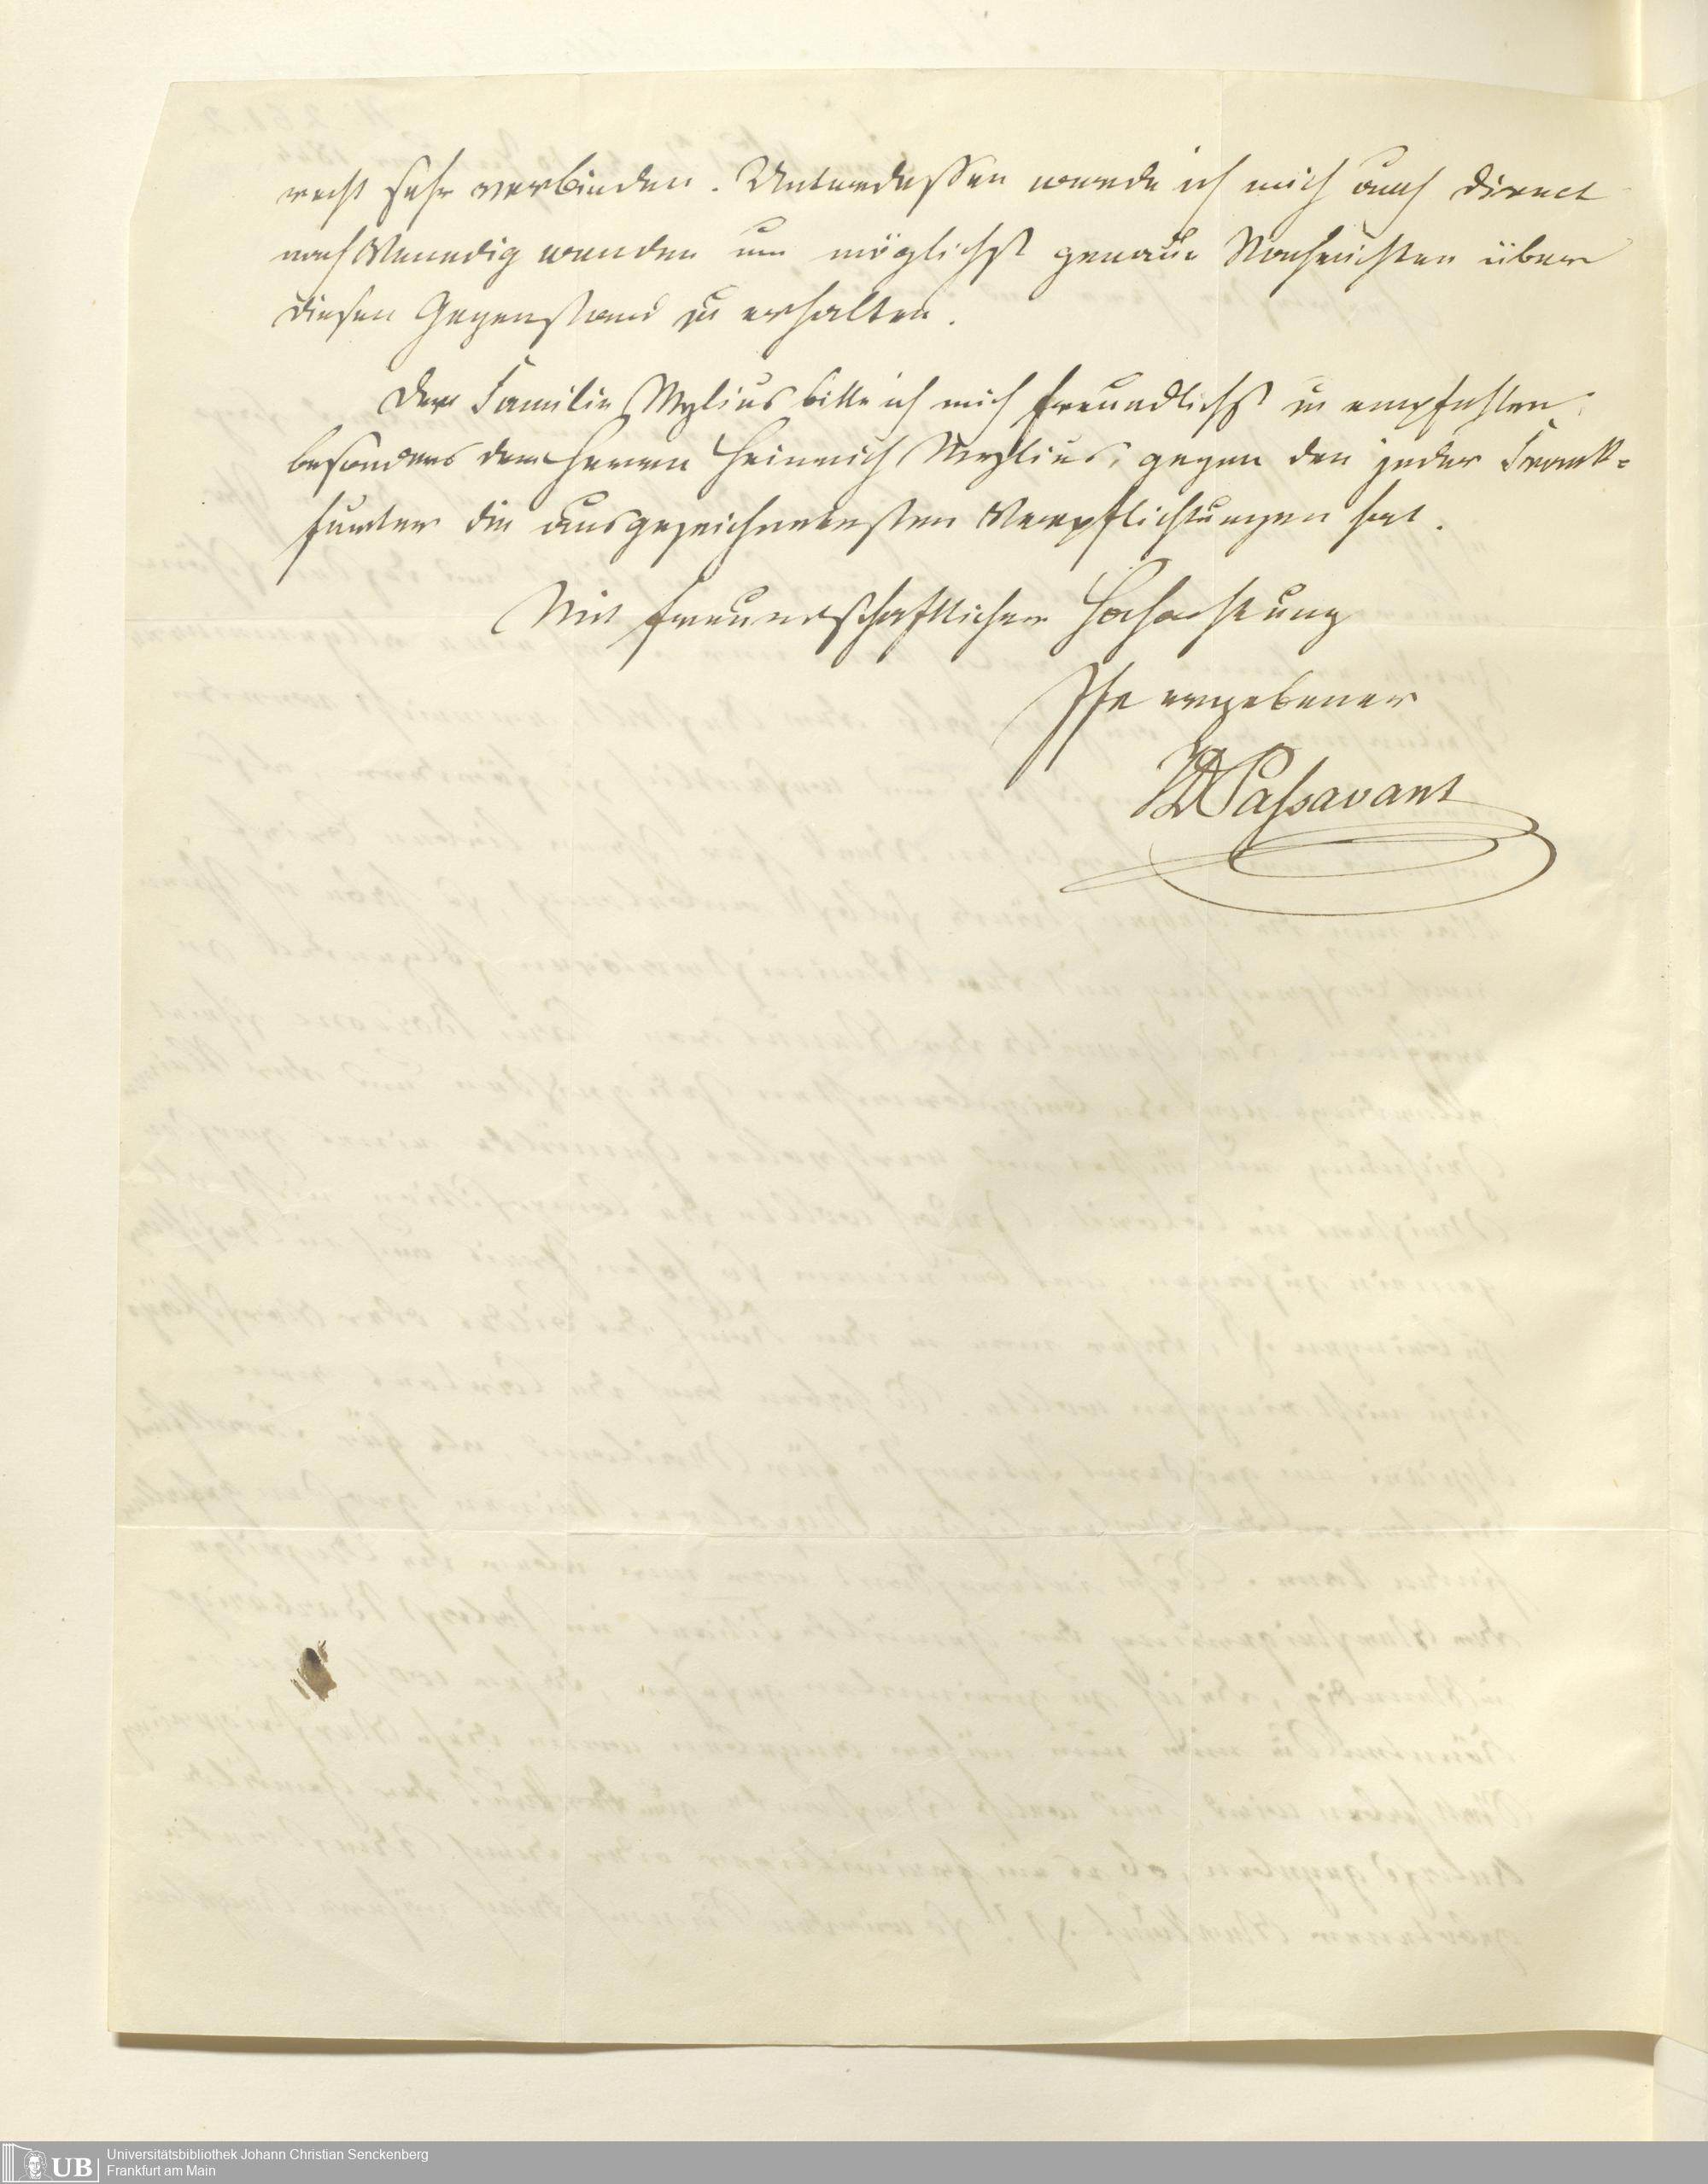 recht sehr verbinden. Unterdessen werde ich mich auch direct
nach Venedig wenden um möglichst genaue Nachrichten über
diesen Gegenstand zu erhalten.
Der Familie Mylius bitte ich mich freundlichst zu empfehlen,
besonders dem Herren Heinrich Mylius, gegen den jeder Frank=
furter die ausgezeichnetesten Verpflichtungen hat.
Mit freundschaftlicher Hochachtung
Ihr ergebener
JD Passavant
UB
Universitätsbibliothek Johann Christian Senckenberg
Frankfurt am Main